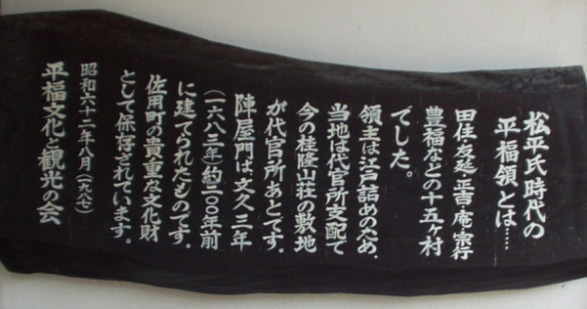 松平氏時代の
平福領とは……
田住・友延・正吉・庵・宗行
豊福などの十五ヶ村
でした。
領主は江戸詰めのため、
当地は代官所支配で
今の桂隆山荘の敷地
が代官所あとです。
陣屋門は文久三年
(一八六三年)約一〇〇年前
に建てられたものです。
佐用町の貴重な文化財
として保存されています。
昭和六十二年八月(一九八七)
平福文化と観光の会